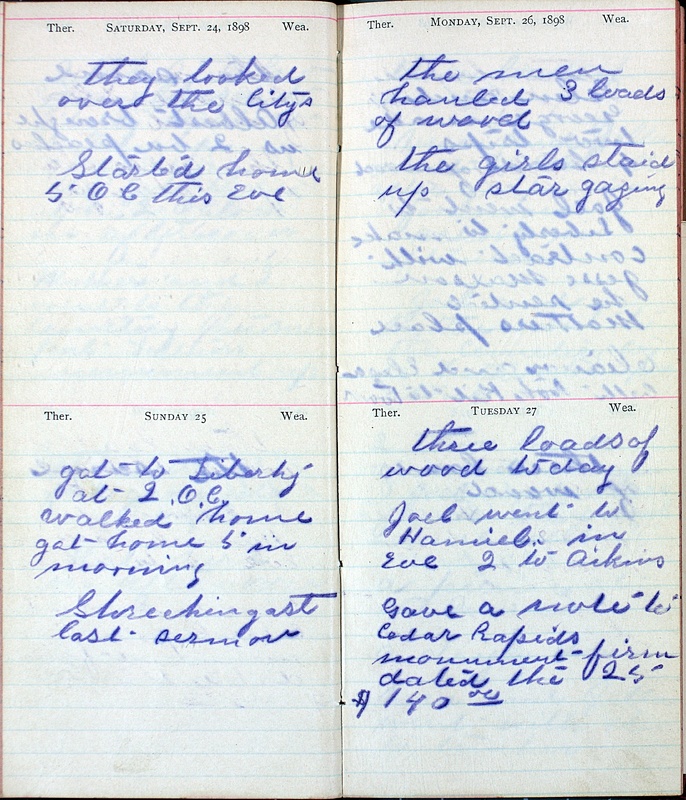 Ther. SATURDAY, SEPT. 24, 1898 Wea.
they looked
over the Citys
Started home
5 O C this Eve
Ther. SUNDAY 25 Wea.
got to Liberty
at 2 O.C.
walked home
got home 5 in
morning
last sermon
Ther. MONDAY, SEPT. 26, 1898 Wea.
the men
hauled 3 loads
of wood
the girls staid
up star gazing
Ther. TUESDAY 27 Wea.
three loads of
wood to day
Joel went to
in
Eve 2 to Aikins
Gave a note to
Cedar Rapids
monument firm
dated the 25
$140 00